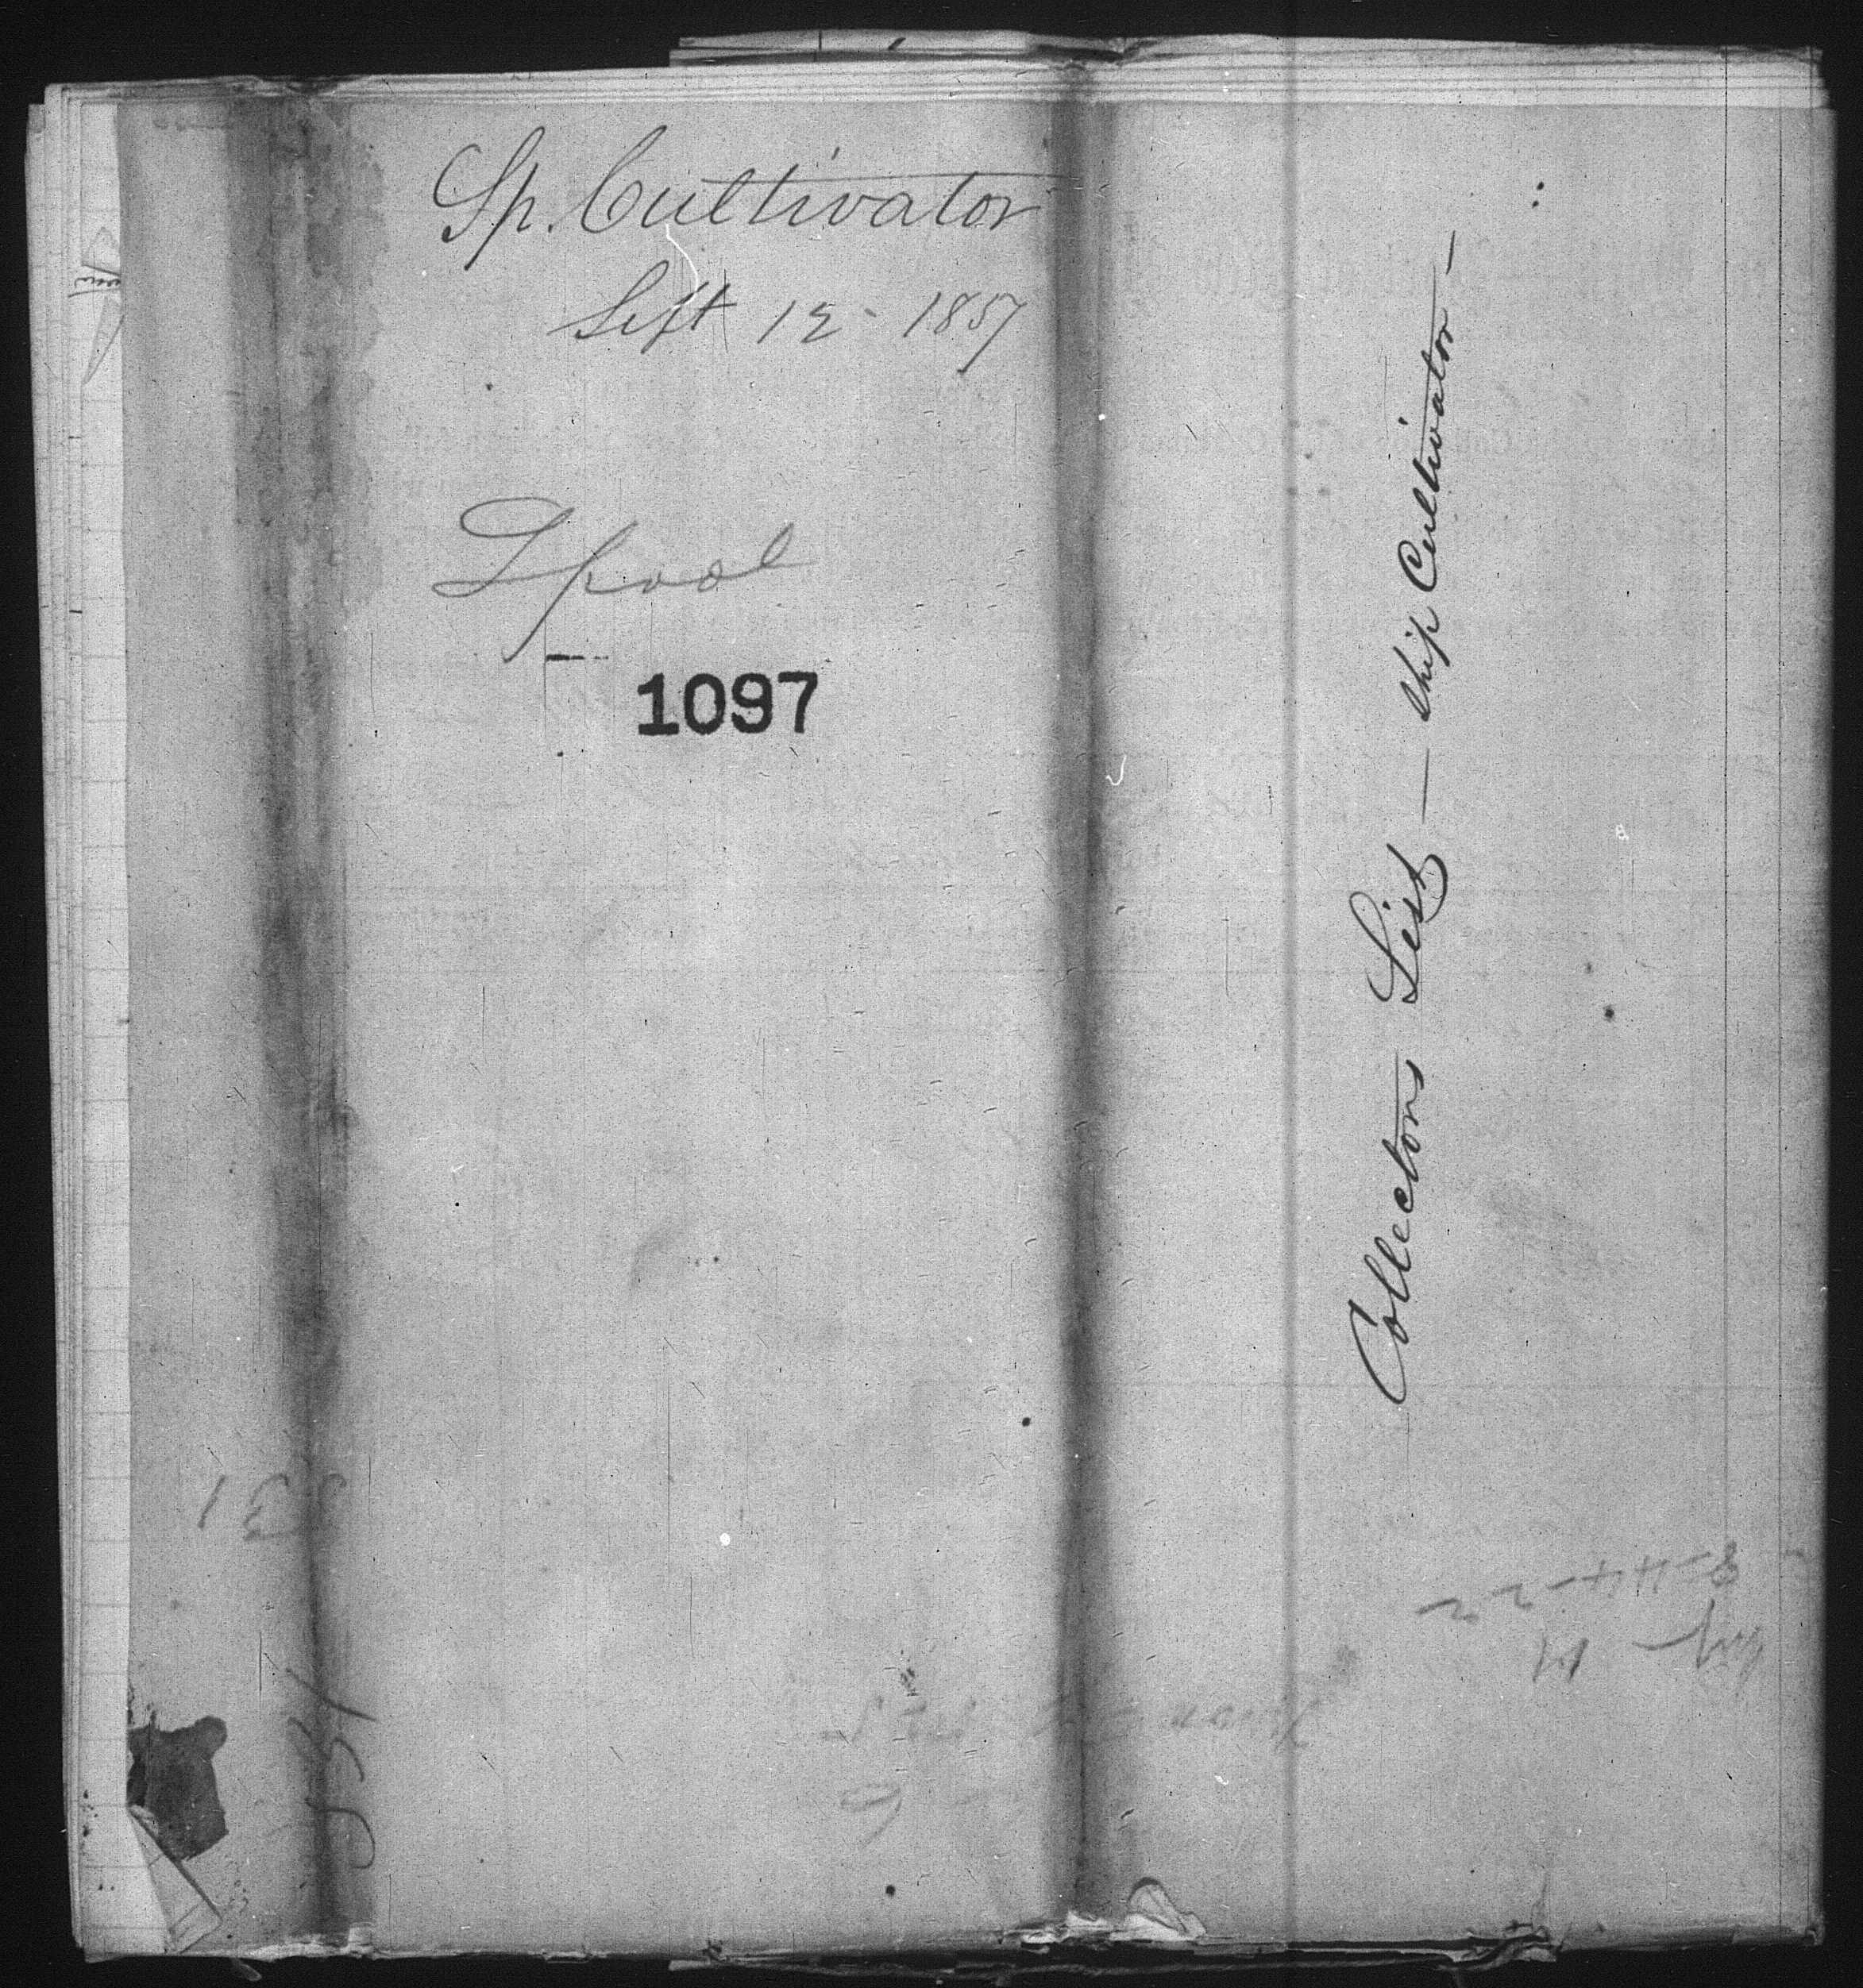 Sp. Cultivator
Sept 12 - 1857
Lpool
1097
Collectors List — Ship Cultivator —
331